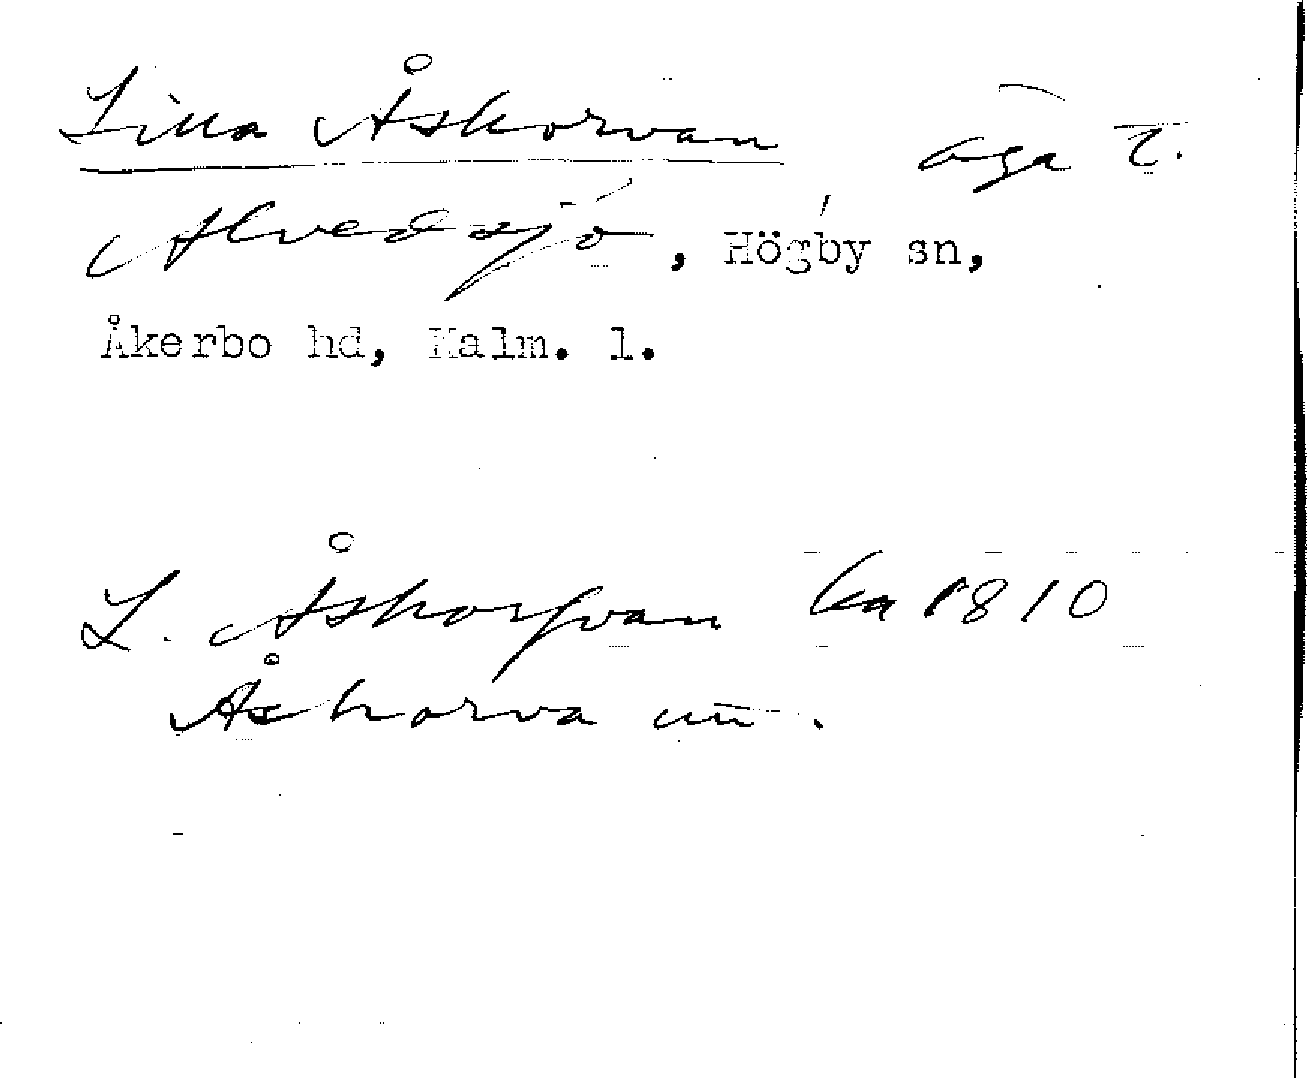 Lilla Åskorvan äga t.
Alvedsjö, Högby sn,
Åkerbo hd, Kalm. l.
L. Åskorfvan ka 1810
Åskorva un.